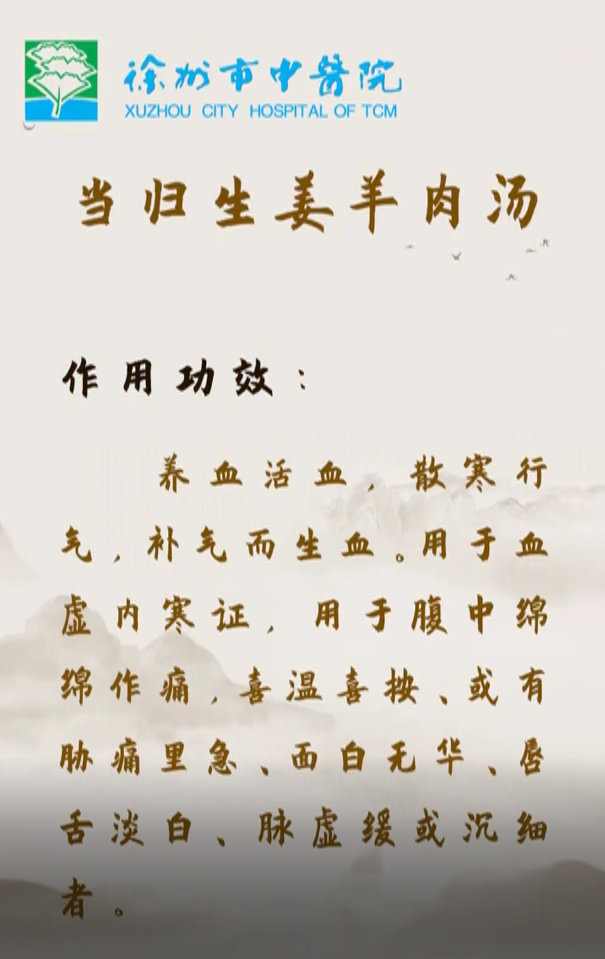 徐州市中醫院
XUZHOU CITY HOSPITAL OF TCM
当归生姜羊肉汤
作用功效：
养血活血，散寒行
气，补气而生血。用于血
虚内寒证，用于腹中绵
绵作痛，喜温喜按、或有
胁痛里急、面白无华、唇
舌淡白、脉虚缓或沉细
者。